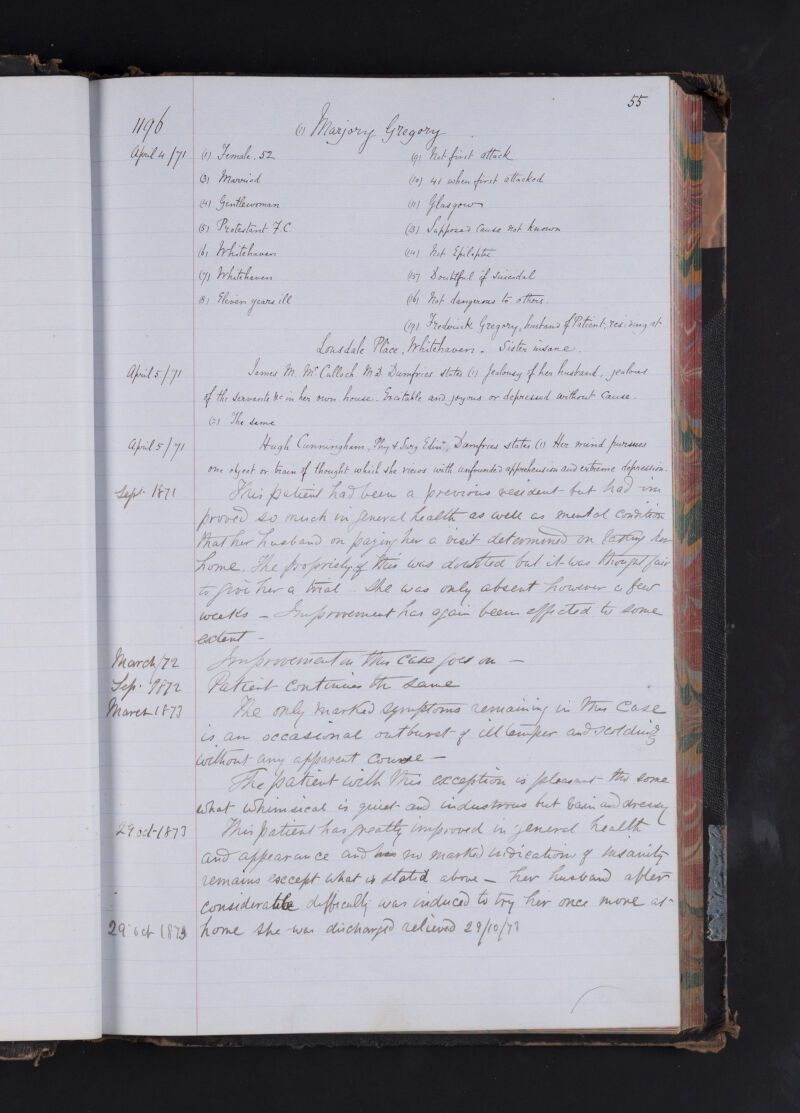 55
1196
(1) Marjory Gregory
April 4/71 (2) Female. 52 (9) Not first attack
(3) Married (10) 41 when first attacked
(4) Gentlewoman (11) Glasgow
(5) Protestant F.C (13) Supposed cause not known
(6) Whitehaven (14) Not Epileptic
(7) Whitehaven (15) Doubtful if Suicidal
(8) Eleven years ill (16) Not dangerous to others.
(17) Frederick Gregory, husband of Patient, residing at
Lonsdale Place, Whitehaven. Sister insane.
April 5/71 James M. McCulloch M.D. Dumfries states (1) Jealousy of her husband, jealous
of the servants &c in her own house. Excitable and joyous or depressed without cause.
(2) The same
April 5/71 Hugh Cunningham, Phy & Surg Edinr, Dumfries states (1) Her mind pursues
one object or train of thought which she views with unfounded apprehension and extreme depression.
Sept. 1871 This patient had been a previous resident but had im
proved so much in general health as well as mental condition
that her husband on paying her a visit determined on taking her
home. The propriety of this was doubted but it was thought fair
to give her a trial. She was only absent however a few
weeks – Improvement has again been effected to some
extent –
March/72 Improvement in this case goes on –
Sep. 1872 Patient continues the same
March 1873 The only marked symptoms remaining in this case
is an occasional outburst of ill temper and scolding
without any apparent course –
The patient with this exception is pleasant tho some
what whimsical is quiet and industrious but vain and dressy
29 oct 1873 This patient has greatly improved in general health
and appearance and has no marked indication of insanity
remains except what is stated above – her husband after
considerable difficulty was induced to try her once more at
29 oct 1873 home she was discharged relieved 29/10/73